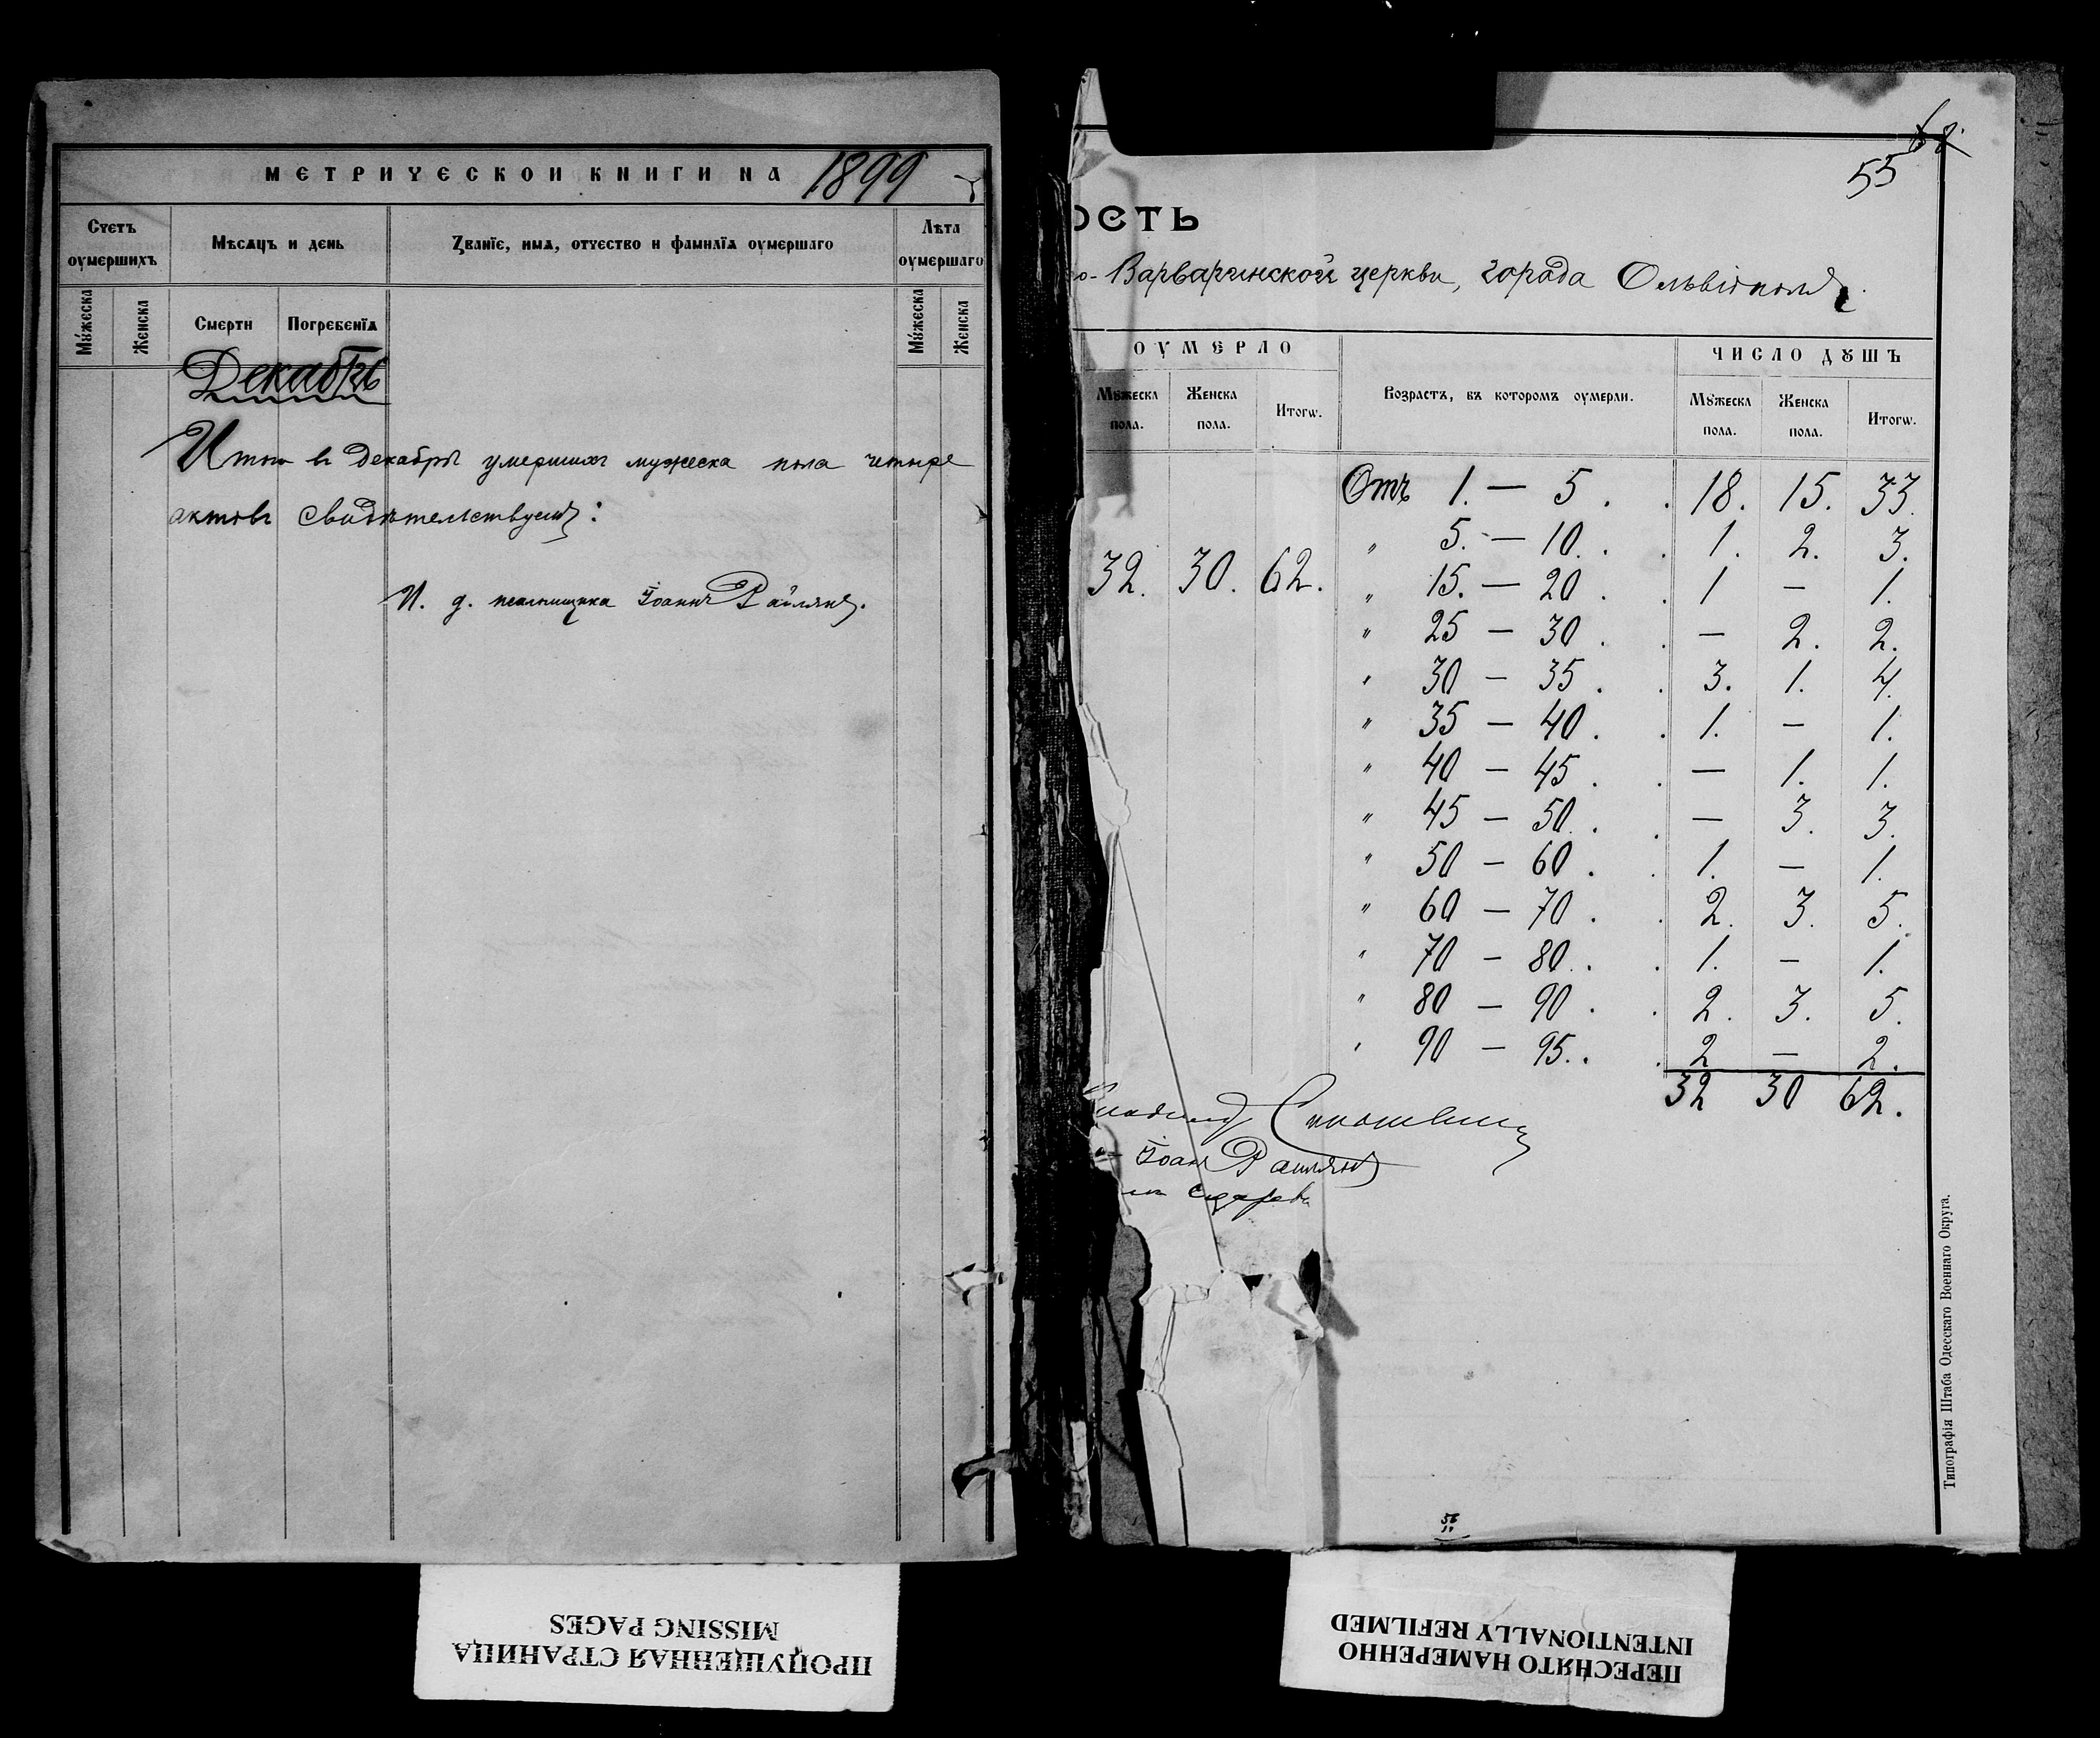 МЕТРИЧЕСКОИ КНИГИ НА 1899
Счетъ оумершихъ
Мѣсяцъ и день
Званїе, имя, отчество и фамилїя оумершаго
Лѣта оумершаго
Мꙋжеска
Женска
Смерти
Погребенїя
Мꙋжеска
Женска
Декабрь
Итого въ Декабрѣ умершихъ мужеска пола четыре
актовъ свидѣтельствуемъ:
И. д. псаломщика Іоаннъ Райлянъ.
68.
55
ОСТЬ
о-Варваринской церкви, города Ольвіополя.
ОУМЕРЛО
Возрастъ, въ которомъ оумерли.
ЧИСЛО ДꙊШЪ
Мꙋжеска пола.
Женска пола.
Итогѡ.
Мꙋжеска пола.
Женска пола.
Итогѡ.
Отъ 1. — 5 . . 18. 15. 33
" 5. — 10. . . 1. 2. 3.
32. 30. 62.
" 15. — 20 . . 1 — 1.
" 25 — 30 . . — 2. 2.
" 30 — 35 . . 3. 1. 4.
" 35 — 40 . . 1. — 1.
" 40 — 45 . . — 1. 1.
" 45 — 50. . . — 3. 3.
" 50 — 60 . . 1. — 1.
" 60 — 70 . . 2. 3. 5.
" 70 — 80. . . 1. — 1.
" 80 — 90 . . 2. 3. 5.
" 90 — 95. . . 2 — 2.
32 30 62.
Іоаннъ Райлянъ
Типографія Штаба Одесскаго Военнаго Округа.
56
11
ПРОПУЩЕННАЯ СТРАНИЦА
MISSING PAGES
ПЕРЕСНЯТО НАМЕРЕННО
INTENTIONALLY REFILMED